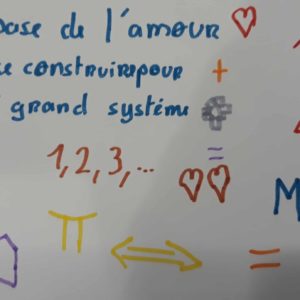 base de l'amour
construire pour +
grand système
=
1,2,3,...
M
π ⇔ =